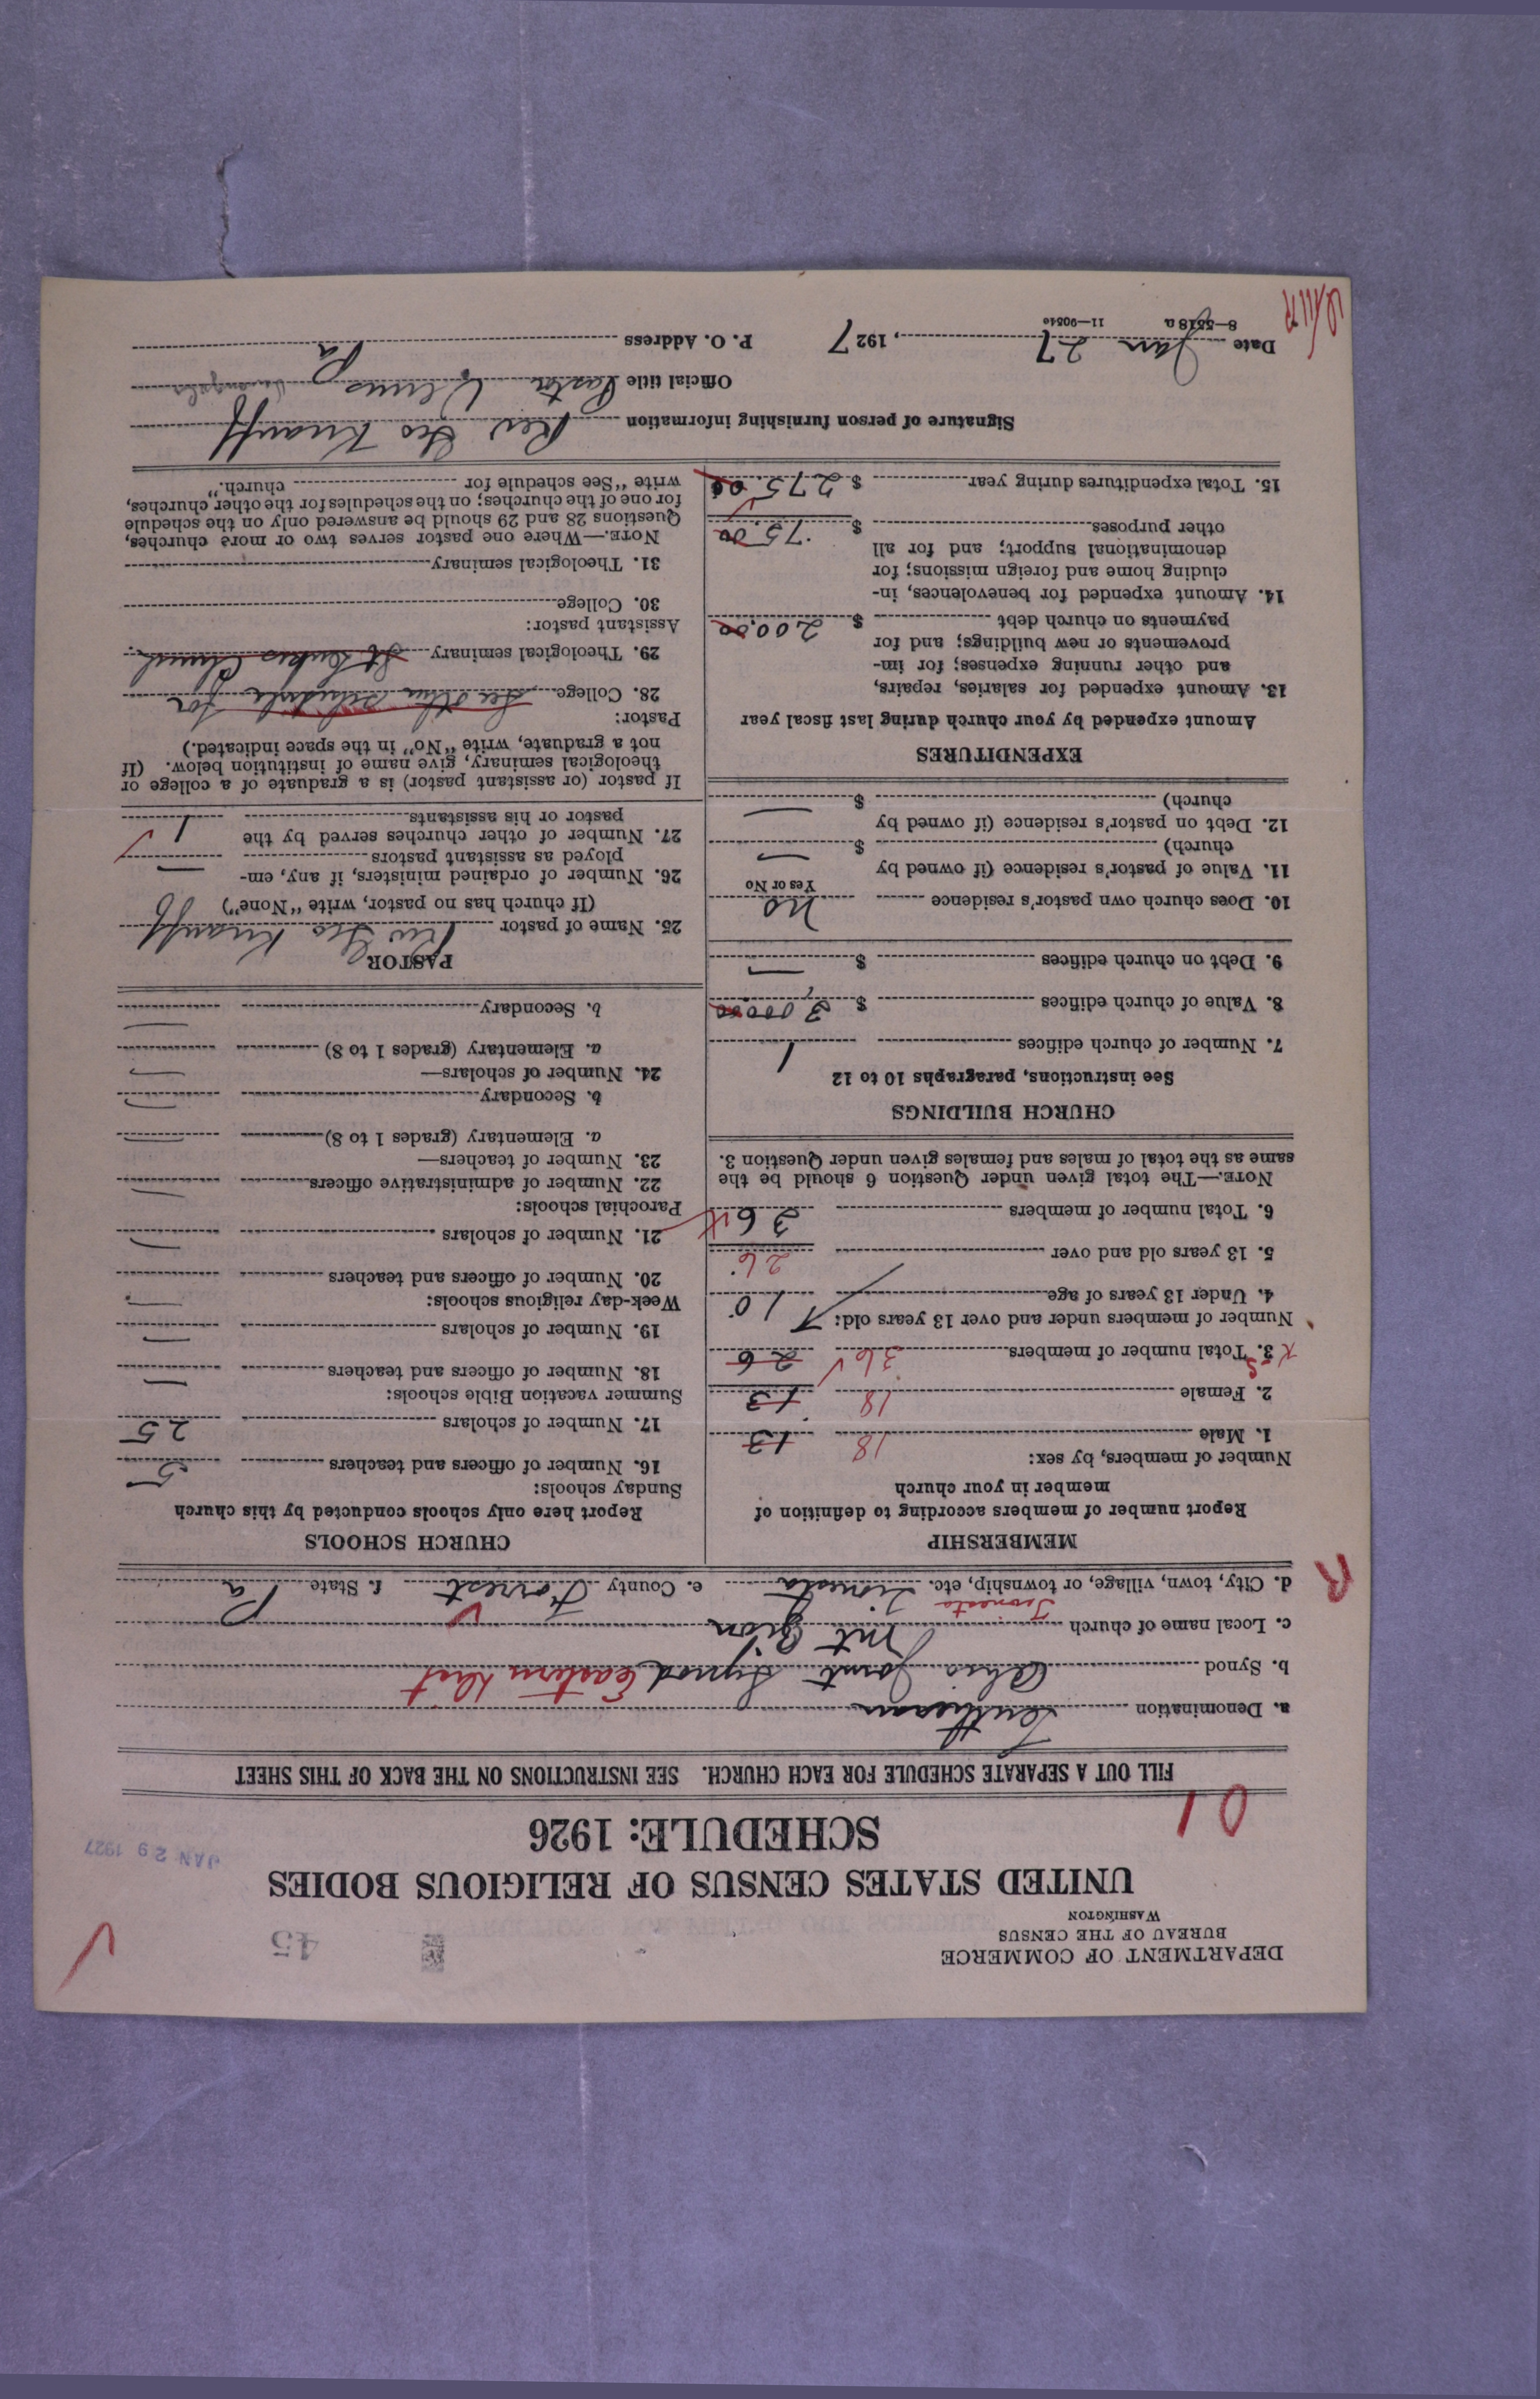 DEPARTMENT OF COMMERCE
BUREAU OF THE CENSUS
WASHINGTON
45
UNITED STATES CENSUS OF RELIGIOUS BODIES
SCHEDULE: 1926
JAN 29 1927
01
FILL OUT A SEPARATE SCHEDULE FOR EACH CHURCH. SEE INSTRUCTIONS ON THE BACK OF THIS SHEET
a. Denomination Lutheran
b. Synod Ohio Joint Synod Eastern Dist
c. Local name of church Mt Zion
d. City, town, village, or township, etc. Tionesta Tionesta e. County Forrest f. State Pa
R
MEMBERSHIP
Report number of members according to definition of
member in your church
Number of members, by sex:
1. Male 18 13
2. Female 18 13
3. Total number of members 36 26
Number of members under and over 13 years old:
4. Under 13 years of age 10
5. 13 years old and over 26
6. Total number of members 36
NOTE.—The total given under Question 6 should be the
same as the total of males and females given under Question 3.
CHURCH BUILDINGS
See instructions, paragraphs 10 to 12
7. Number of church edifices 1
8. Value of church edifices $ 3,000.00
9. Debt on church edifices $ —
10. Does church own pastor's residence No
Yes or No
11. Value of pastor's residence (if owned by
church) $ —
12. Debt on pastor's residence (if owned by
church) $ —
EXPENDITURES
Amount expended by your church during last fiscal year
13. Amount expended for salaries, repairs,
and other running expenses; for im-
provements or new buildings; and for
payments on church debt $ 200.00
14. Amount expended for benevolences, in-
cluding home and foreign missions; for
denominational support; and for all
other purposes $ 75.00
15. Total expenditures during year $ 275.00
CHURCH SCHOOLS
Report here only schools conducted by this church
Sunday schools:
16. Number of officers and teachers 5
17. Number of scholars 25
Summer vacation Bible schools:
18. Number of officers and teachers —
19. Number of scholars —
Week-day religious schools:
20. Number of officers and teachers —
21. Number of scholars —
Parochial schools:
22. Number of administrative officers —
23. Number of teachers—
a. Elementary (grades 1 to 8) —
b. Secondary —
24. Number of scholars—
a. Elementary (grades 1 to 8) —
b. Secondary —
PASTOR
25. Name of pastor Rev Geo Knauff
(If church has no pastor, write "None")
26. Number of ordained ministers, if any, em-
ployed as assistant pastors —
27. Number of other churches served by the
pastor or his assistants 1
If pastor (or assistant pastor) is a graduate of a college or
theological seminary, give name of institution below. (If
not a graduate, write "No" in the space indicated.)
Pastor:
28. College See other schedule for
29. Theological seminary St Lukes Church
Assistant pastor:
30. College
31. Theological seminary
NOTE.—Where one pastor serves two or more churches,
Questions 28 and 29 should be answered only on the schedule
for one of the churches; on the schedules for the other churches,
write "See schedule for church."
Signature of person furnishing information Rev Geo Knauff
Official title Pastor Venus Venango Co
Date Jan 27, 1927 P. O. Address Pa
8—5518a 11—9054